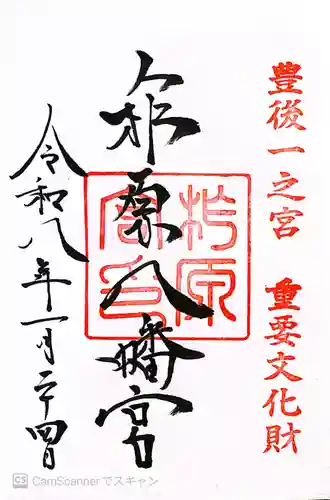 豊後一之宮　重要文化財
柞原八幡宮
柞原
宮印
令和八年一月二十四日
CS CamScannerでスキャン